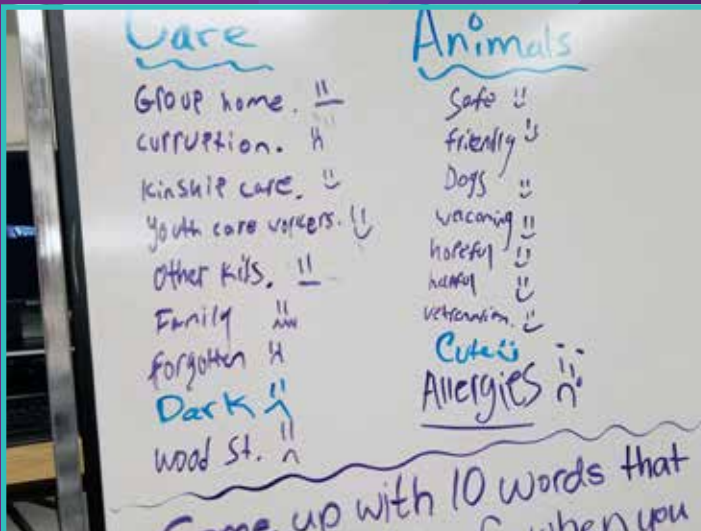 Care
Group home.
curruption.
kinship care.
youth care workers.
other kids.
Family
forgotten
Dark
Wood St.
Animals
Safe
friendly
Dogs
wacoming
hopeful
Cute
Allergies
Come up with 10 words that
when you